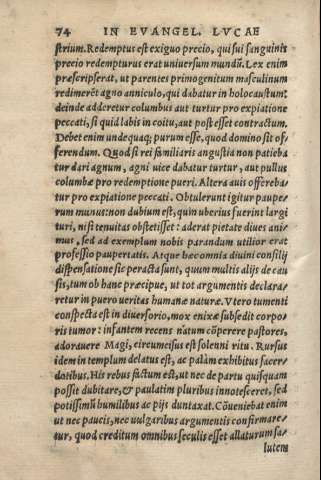 74 IN EVANGEL. LVCAE
strium. Redemptus est exiguo precio, qui sui sanguinis
precio redempturus erat uniuersum mundū. Lex enim
præscripserat, ut parentes primogenitum masculinum
redimerēt agno anniculo, qui dabatur in holocaustum:
deinde adderetur columbus aut turtur pro expiatione
peccati, si quid labis in coitu, aut post esset contractum.
Debet enim undequaq; purum esse, quod domino sit of-
ferendum. Quod si rei familiaris angustia non patieba
tur dari agnum, agni uice dabatur turtur, aut pullus
columbæ pro redemptione pueri. Altera auis offereba-
tur pro expiatione peccati. Obtulerunt igitur paupe-
rum munus: non dubium est, quin uberius fuerint largi
turi, nisi tenuitas obstetisset: aderat pietate diues ani-
mus, sed ad exemplum nobis parandum utilior erat
professio paupertatis. Atque hæc omnia diuini consilij
dispensatione sic peracta sunt, quum multis alijs de cau
sis, tum ob hanc præcipue, ut tot argumentis declara-
retur in puero ueritas humanæ naturæ. Vtero tumenti
conspecta est in diuersorio, mox enixæ subsedit corpo-
ris tumor: infantem recens natum cōperere pastores,
adorauere Magi, circumcisus est solenni ritu. Rursus
idem in templum delatus est, ac palàm exhibitus sacer-
dotibus. His rebus factum est, ut nec de partu quisquam
possit dubitare, & paulatim pluribus innotesceret, sed
potissimū humilibus ac pijs duntaxat. Cōueniebat enim
ut nec paucis, nec uulgaribus argumentis confirmare-
tur, quod creditum omnibus seculis esset allaturum sa-
lutem